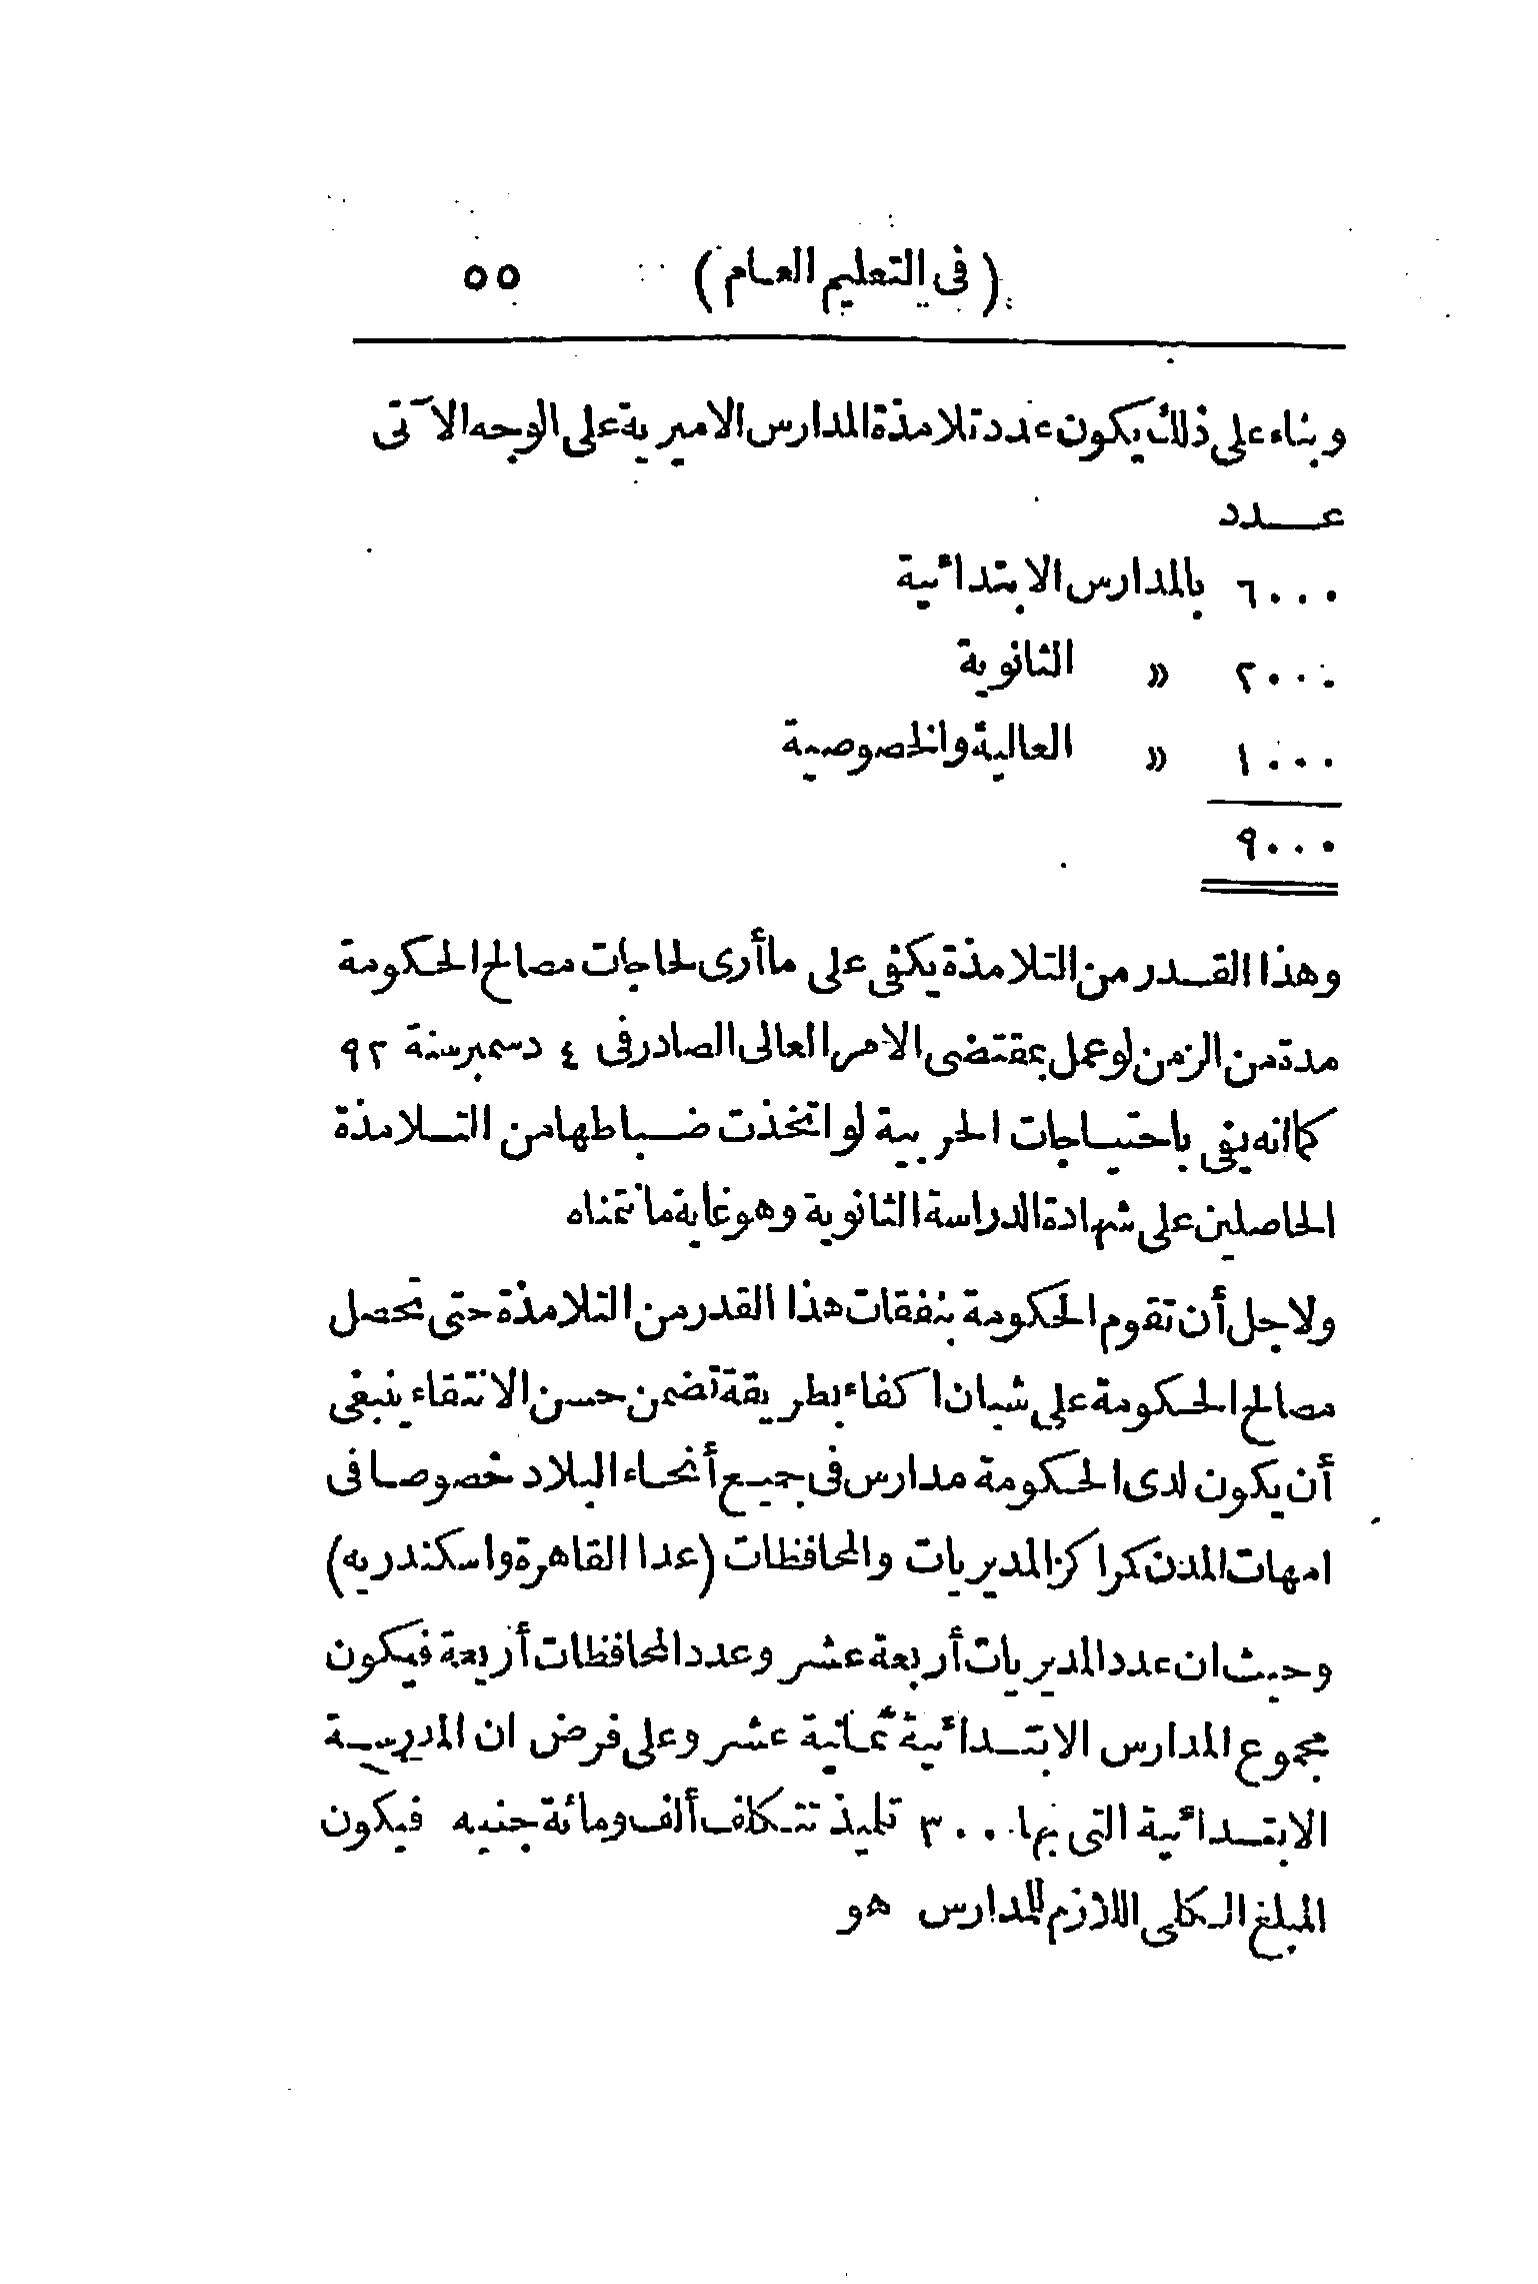 (فى التعليم العام) ٥٥
وبناء على ذلك يكون عدد تلامذة المدارس الاميرية على الوجه الآتى
عدد
٦٠٠٠ بالمدارس الابتدائية
٢٠٠٠ » الثانوية
١٠٠٠ » العالية والخصوصية
٩٠٠٠
وهذا القدر من التلامذة يكفى على ما أرى لحاجات مصالح الحكومة
مدة من الزمن لو عمل بمقتضى الامر العالى الصادر فى ٤ دسمبر سنة ٩٢
كما انه يفى باحتياجات الحربية لو اتخذت ضباطها من التلامذة
الحاصلين على شهادة الدراسة الثانوية وهو غاية ما نتمناه
ولاجل أن تقوم الحكومة بنفقات هذا القدر من التلامذة حتى تحصل
مصالح الحكومة على شبان اكفاء بطريقة تضمن حسن الانتقاء ينبغى
أن يكون لدى الحكومة مدارس فى جميع أنحاء البلاد خصوصا فى
امهات المدن كمراكز المديريات والمحافظات (عدا القاهرة واسكندريه)
وحيث ان عدد المديريات أربعة عشر وعدد المحافظات أربعة فيكون
مجموع المدارس الابتدائية ثمانية عشر وعلى فرض ان المدرسة
الابتدائية التى بها ٣٠٠ تلميذ تتكلف ألف ومائة جنيه فيكون
المبلغ الكلى اللازم للمدارس هو